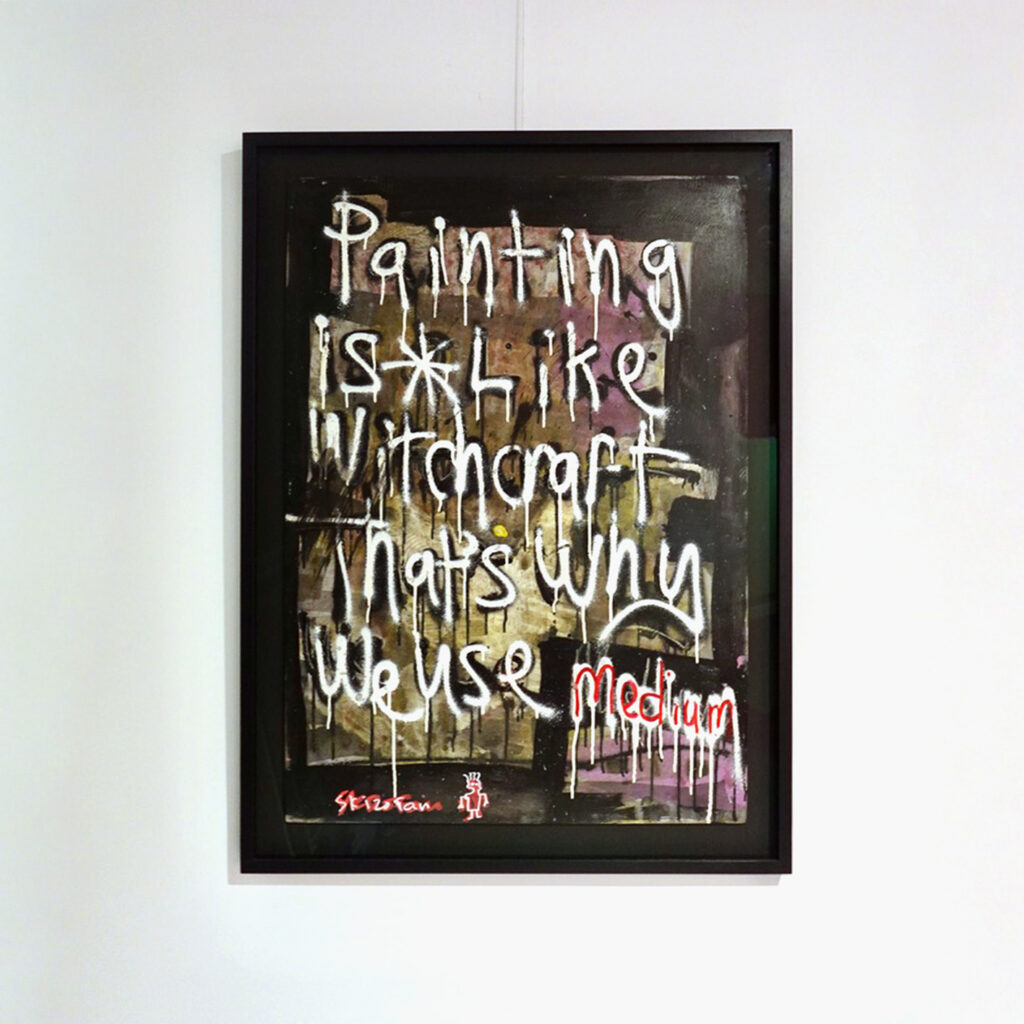 Painting
is*Like
Witchcraft
That's Why
We use medium